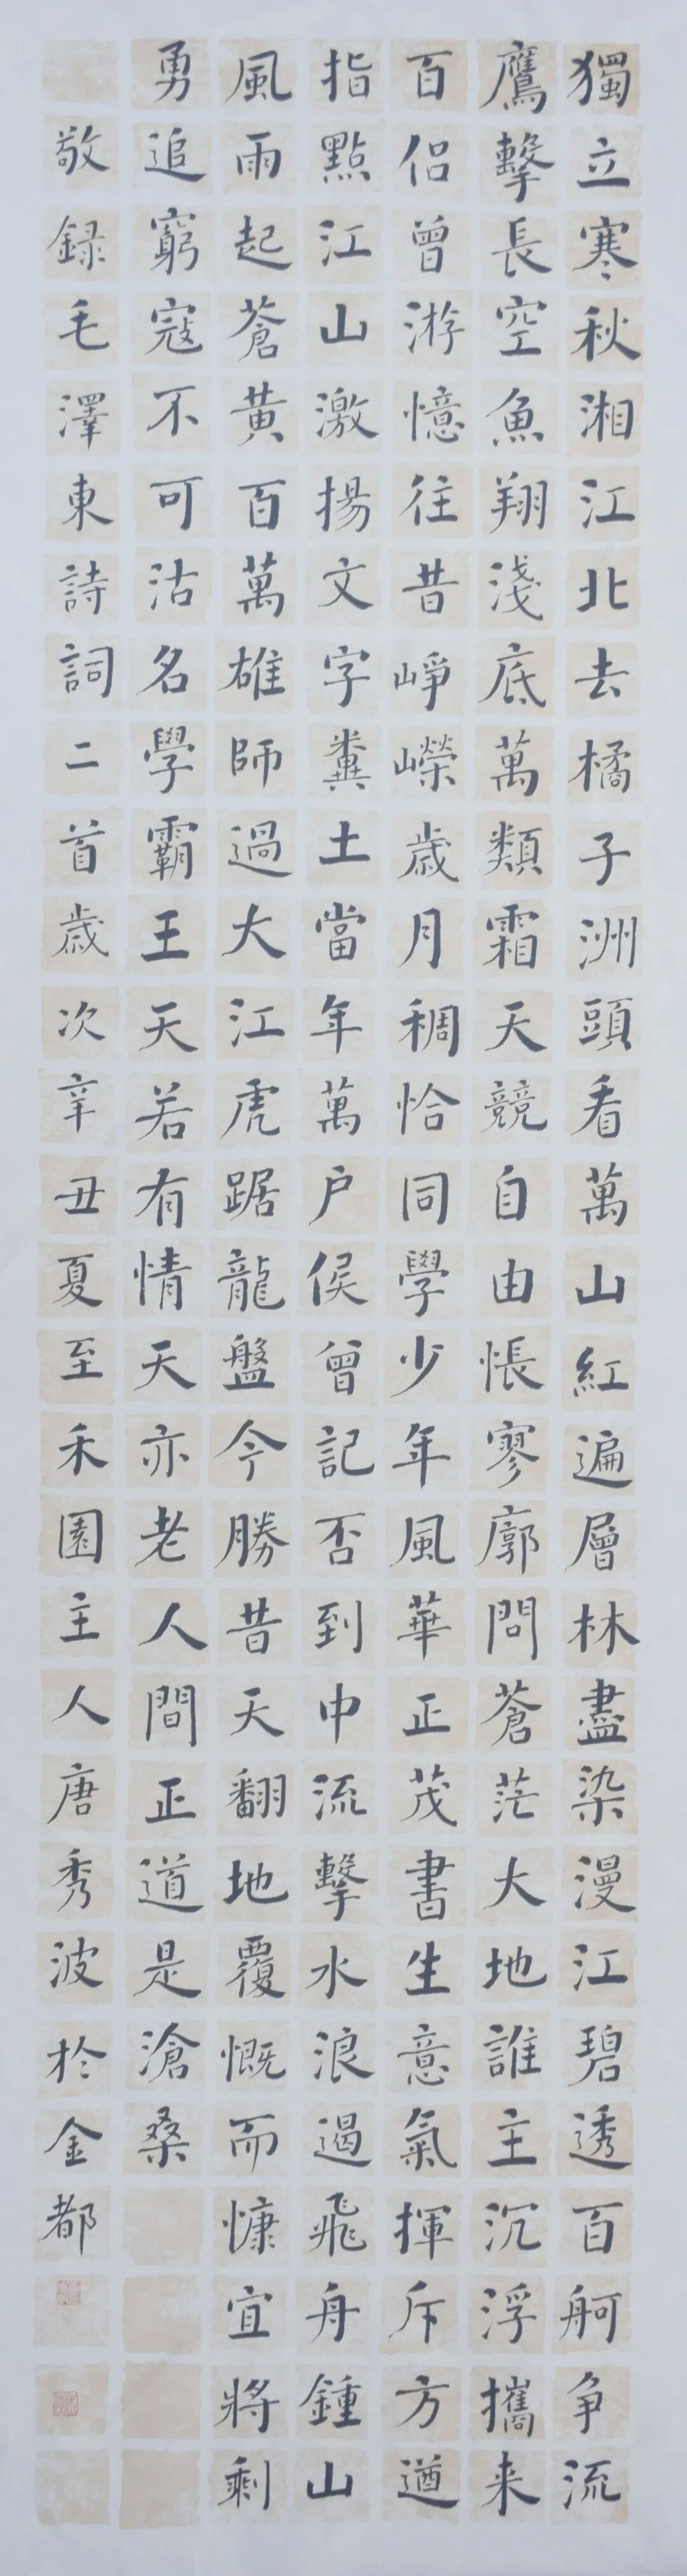 獨立寒秋湘江北去橘子洲頭看萬山紅遍層林盡染漫江碧透百舸争流
鷹擊長空魚翔淺底萬類霜天競自由悵寥廓問蒼茫大地誰主沉浮攜来
百侣曾游憶往昔崢嶸歲月稠恰同學少年風華正茂書生意氣揮斥方遒
指點江山激揚文字糞土當年萬户侯曾記否到中流擊水浪遏飛舟鍾山
風雨起蒼黃百萬雄師過大江虎踞龍盤今勝昔天翻地覆慨而慷宜將剩
勇追窮寇不可沽名學霸王天若有情天亦老人間正道是滄桑
敬録毛澤東詩詞二首歲次辛丑夏至禾園主人唐秀波於金都